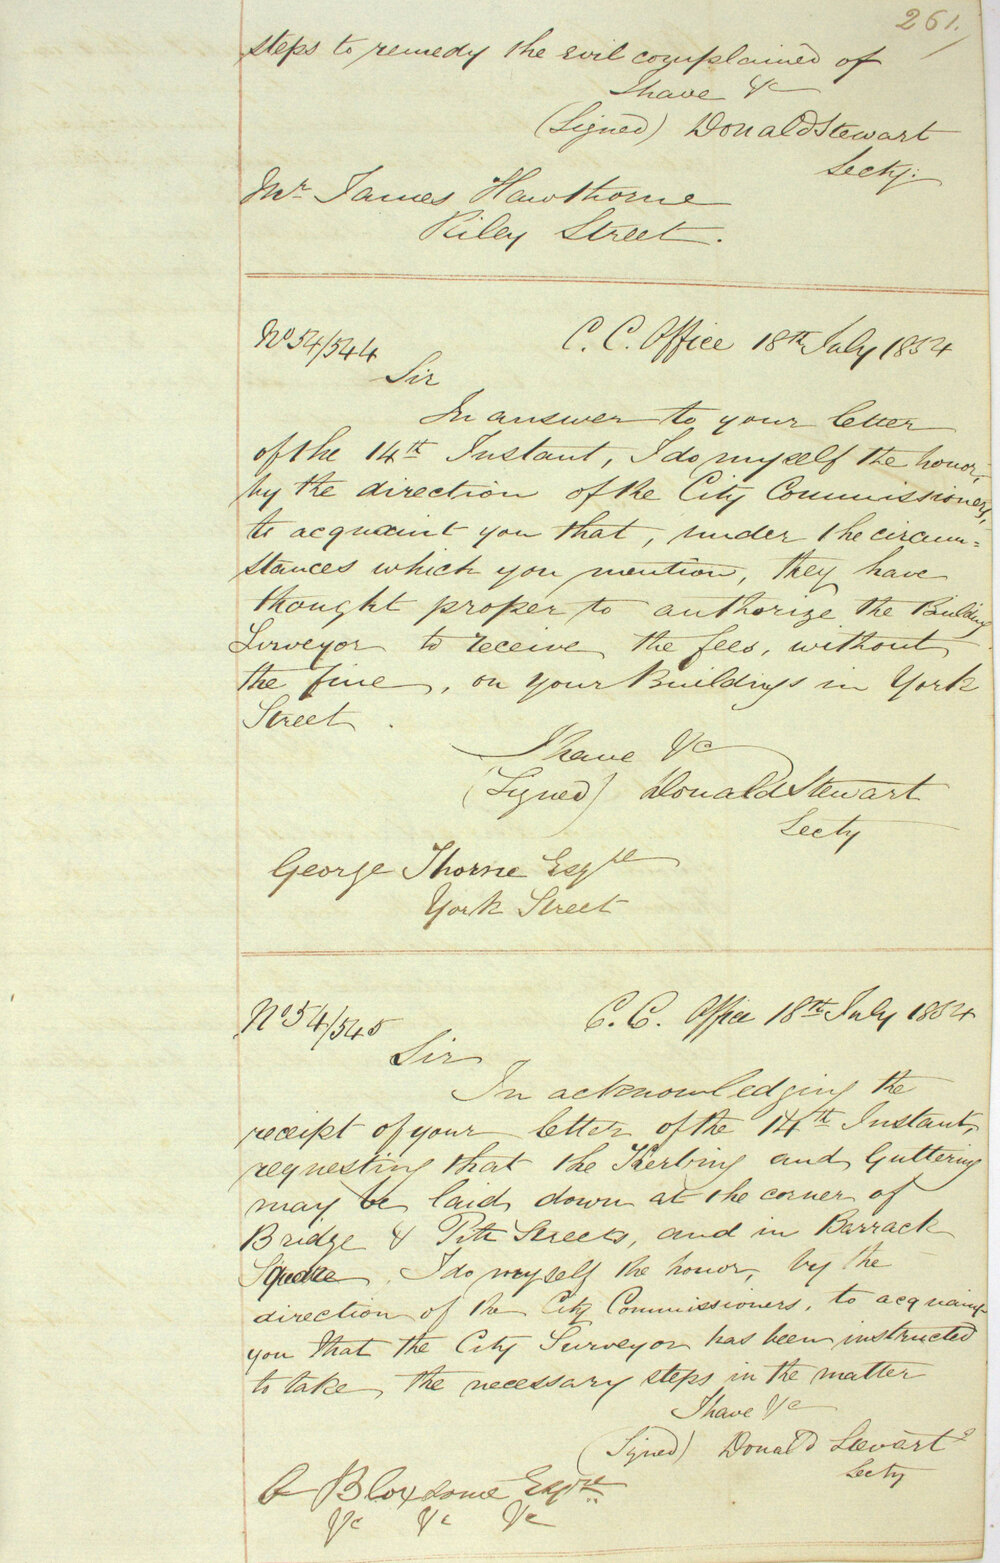 261.
steps to remedy the evil complained of
I have &c
(Signed) Donald Stewart
Secty.
Mr. James Hawthorne
Riley Street.
No 54/544
C. C. Office 18th July 1854
Sir
In answer to your letter
of the 14th Instant, I do myself the honor,
by the direction of the City Commissioners,
to acquaint you that, under the circum=
stances which you mention, they have
thought proper to authorize the Building
Surveyor to receive the fees, without
the fine, on your Buildings in York
Street.
I have &c
(Signed) Donald Stewart
Secty
George Thorne Esqre
York Street
No 54/545
C. C. Office 18th July 1854
Sir
In acknowledging the
receipt of your letter of the 14th Instant,
requesting that the Kerbing and Guttering
may be laid down at the corner of
Bridge & Pitt Streets, and in Barrack
Square, I do myself the honor, by the
direction of the City Commissioners, to acquaint
you that the City Surveyor has been instructed
to take the necessary steps in the matter
I have &c
(Signed) Donald Stewart
Secty
Bloxsome Esqre
&c &c &c